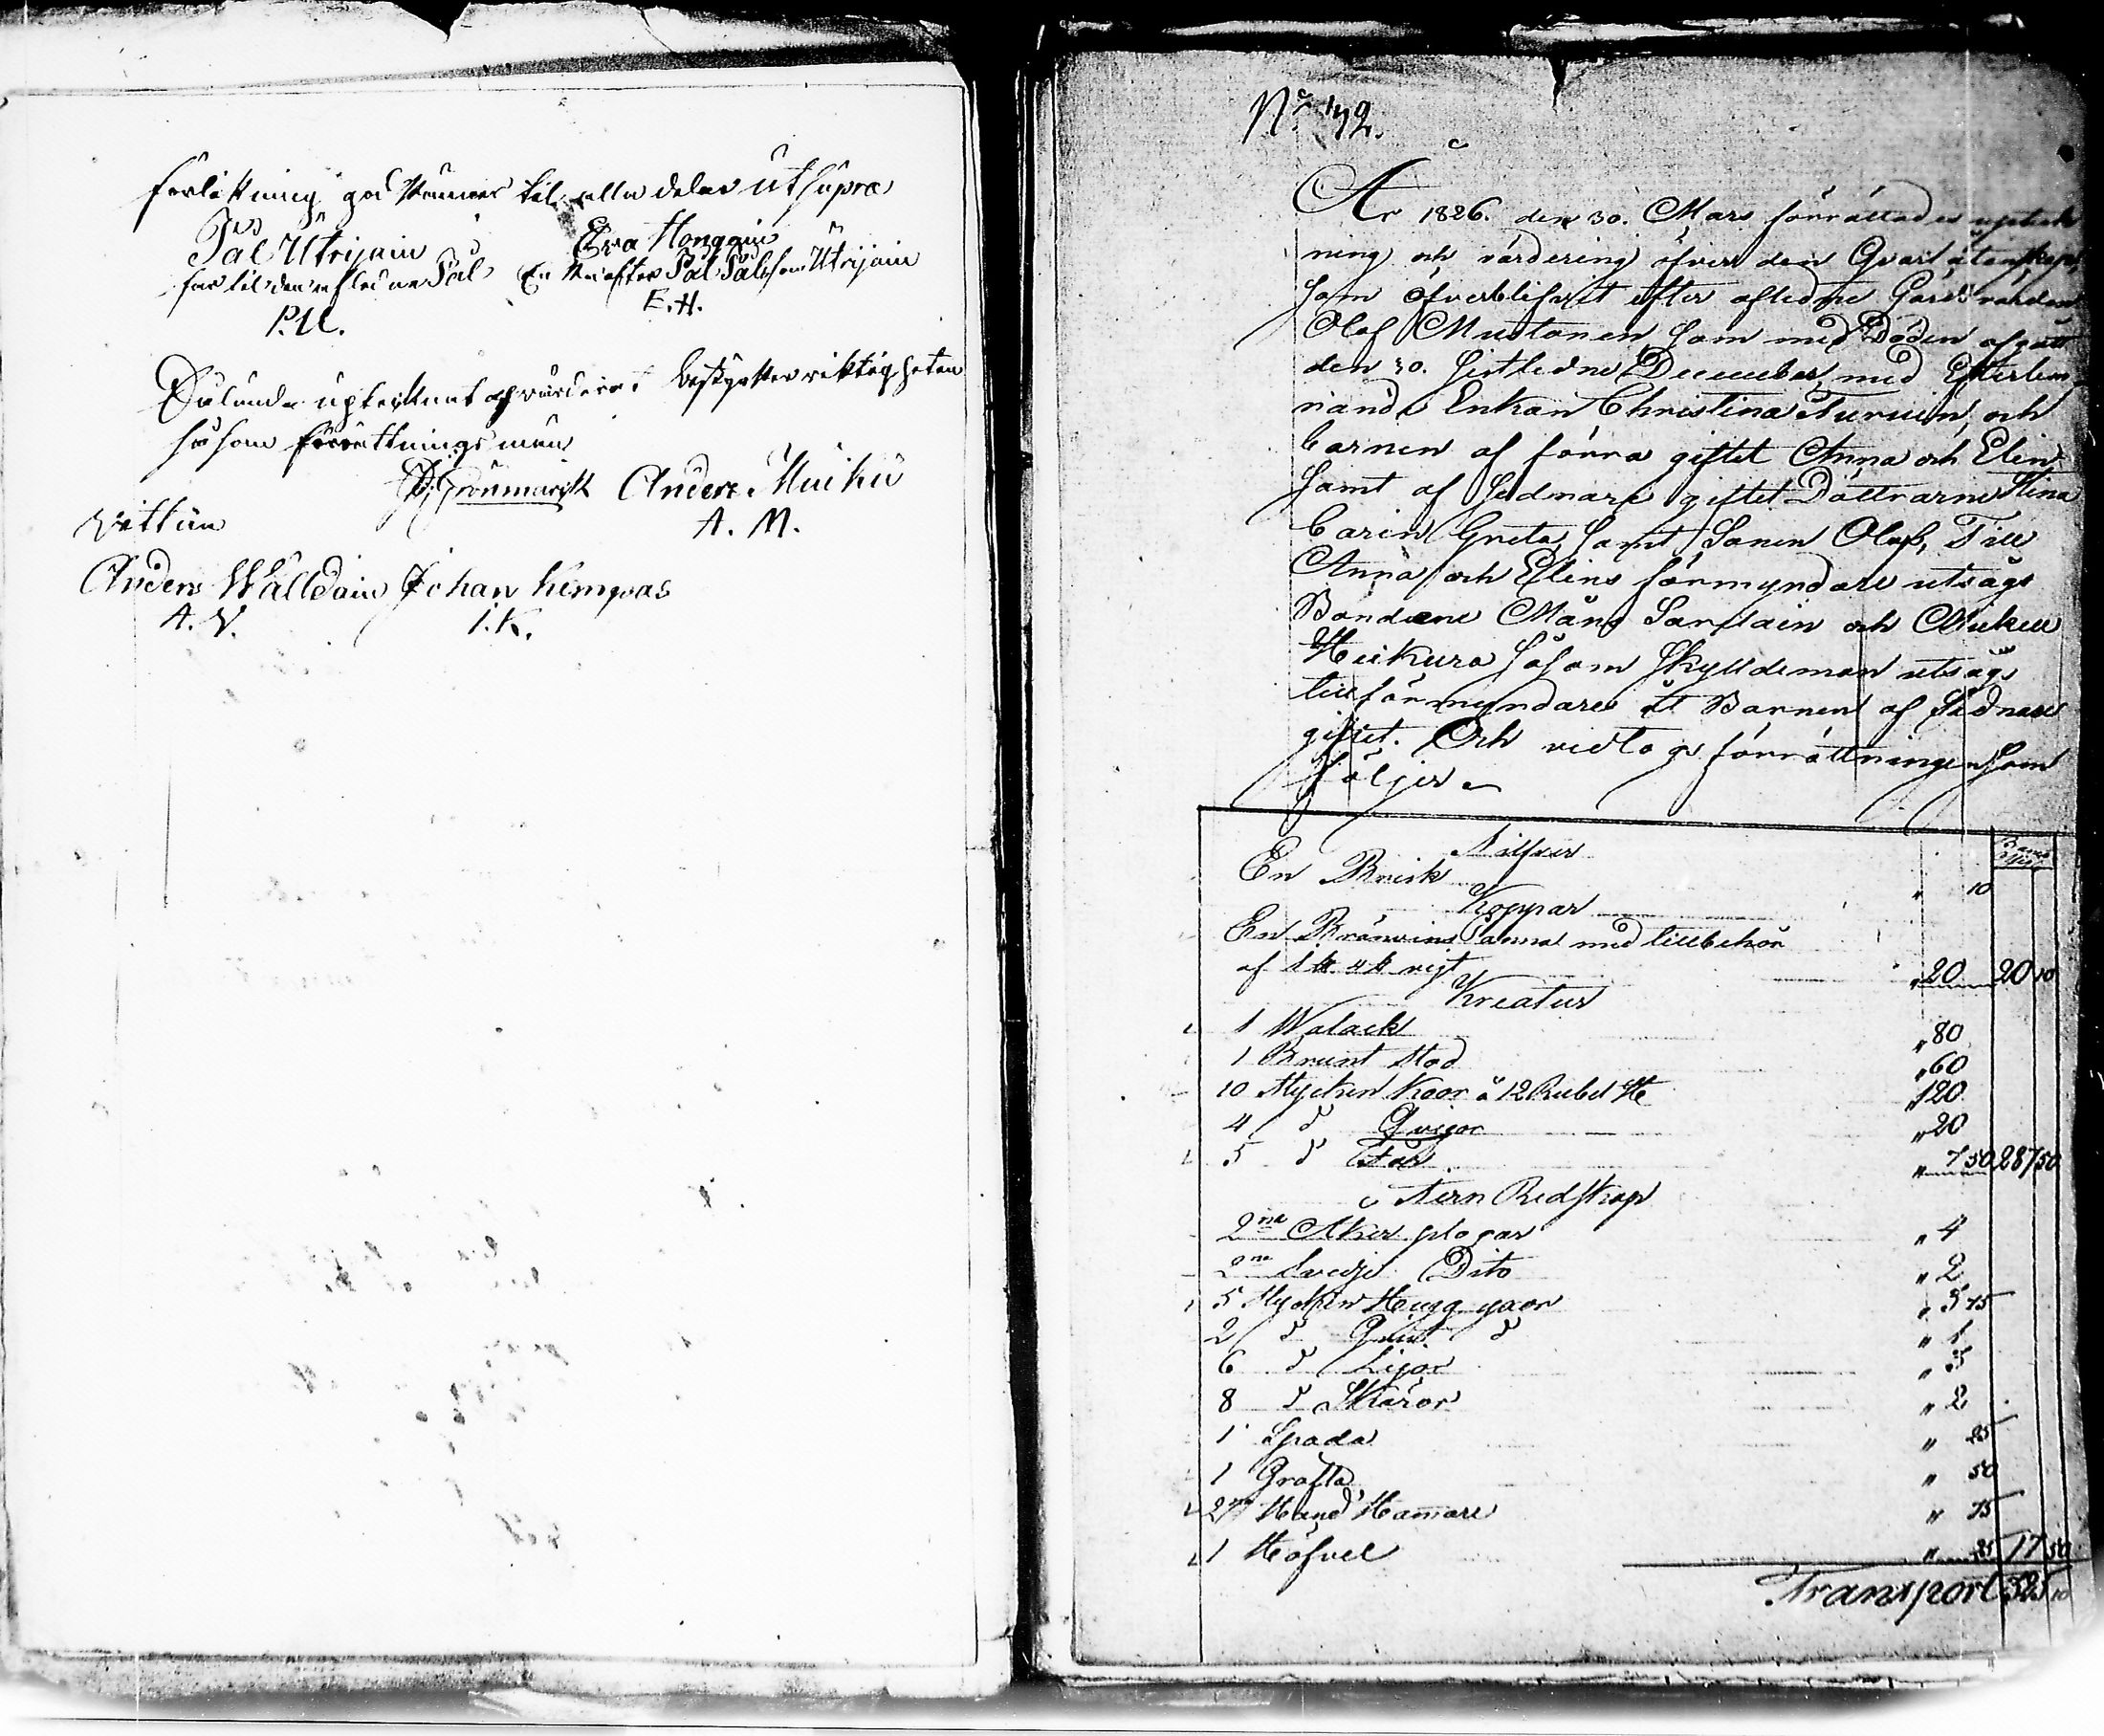 förlåttning god kännes til alla delar ut supra
Pål Utrijain Eva Honggain
far til den afledne Pål Enka efter Pål Pålsson Utrijain
P.U. E.H.
Sålunda uptecknat och värderat betygar riktigheten
såsom förrättningsmän
Grönmarck Anders Muiku
A. M.
Vittna
Anders Walldain Johan Kempas
A. V. I. K.
No 72.
År 1826. den 30. Mars förrättades upteck
ning och värdering öfver den Qvarlåtenskap
som öfverblifvit efter aflidne Gårdsvärden
Olof Mustonen som med Döden afgått
den 30. sistledne December, med Efterlem
nande Enkan Christina Turuin, och
barnen af förra giftet Anna och Elin
samt af sednare giftet Döttrarne Stina
Carin Greta samt Sonen Olof, Till
Anna och Elins förmyndare utsågs
Bönderne Måns Sarlain och Mickel
Heikura såsom skyldeman utsågs
till förmyndare åt Barnen af Sednare
giftet. Och vidtogs förrättningen som
följer
Banco
Silfver
En Brisk " 10
Koppar
En Bränvins Panna med tillbehör
af 1 4 vigt " 20 20 10
Kreatur
1 Walack " 80
1 Brunt Stod " 60
10 Stycken Koor à 12 Rubel St " 120
4 D Qvigor " 20
5 D Får " 7 50 287 50
Jern Redskap
2ne Åker plogar " 4
2ne Svedje Dito " 2
5 Stycken Hugg yxor " 3 75
2 D Qvist D " 1
6 D Lijor " 5
8 D Skäror " 2
1 Spada " 25
1 Grafta " 50
2ne Hand Hamare " 75
1 Höfvel " 25 17 50
Transport 325 10